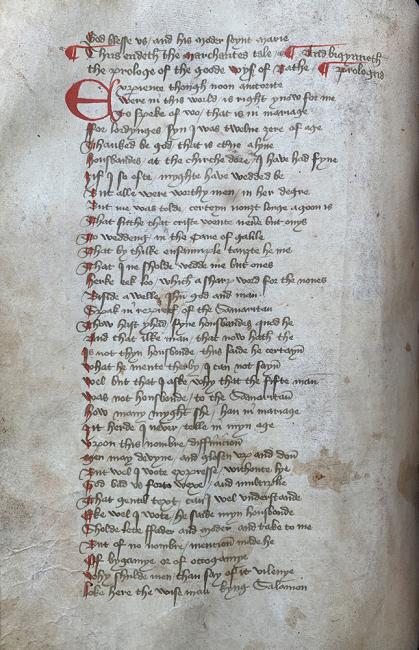 God blesse vs / and his moder seynt marie
¶ Thus endeth the marchantes tale / ¶ And bigynneth
the prologe of the goode wyf of Bathe / ¶ prologus
Experience though noon auctorite
Were in this world is right ynow for me
To speke of wo / that is in mariage
ffor lordynges syn I was twelue yere of age
Thanked be god that is eterne alyue
housbondes at the chirche dore I haue had fyue
If I so ofte myghte haue wedded be
But alle were worthy men in her degre
But me was tolde certeyn nought longe agoon is
That sithe that criste wente neuer but onys
To weddyng in the Cane of galile
That by thilke ensaumple taughte he me
That I ne sholde wedde me but ones
herke eek loo which a sharp word for the nones
Biside a welle Ihesu god and man
Spak in repreef of the Samaritan
Thow hast yhad fyue housbondes quod he
And that ilke man / that now hath the
Is not thyn housbonde thus saide he certayn
what he mente therby I can not sayn
wel but that I aske why that the fifte man
was non housbonde / to the Samaritan
how many myght she / han in mariage
yit herde I neuer / telle in myn age
vpon this nombre diffinicion
men may deuyne / and glosen vp and don
But wel I wote expresse / withoute lye
God bad vs forto wexe / and multiplie
That gentil text / can I wel vnderstande
Eke wel I wote / he saide myn housbonde
Sholde lete ffader and moder / and take to me
But of no nombre / mencion made he
Of bygamye or of octogamye
why shulde men than say of it vilenye
loke here the wise man kyng Salamon